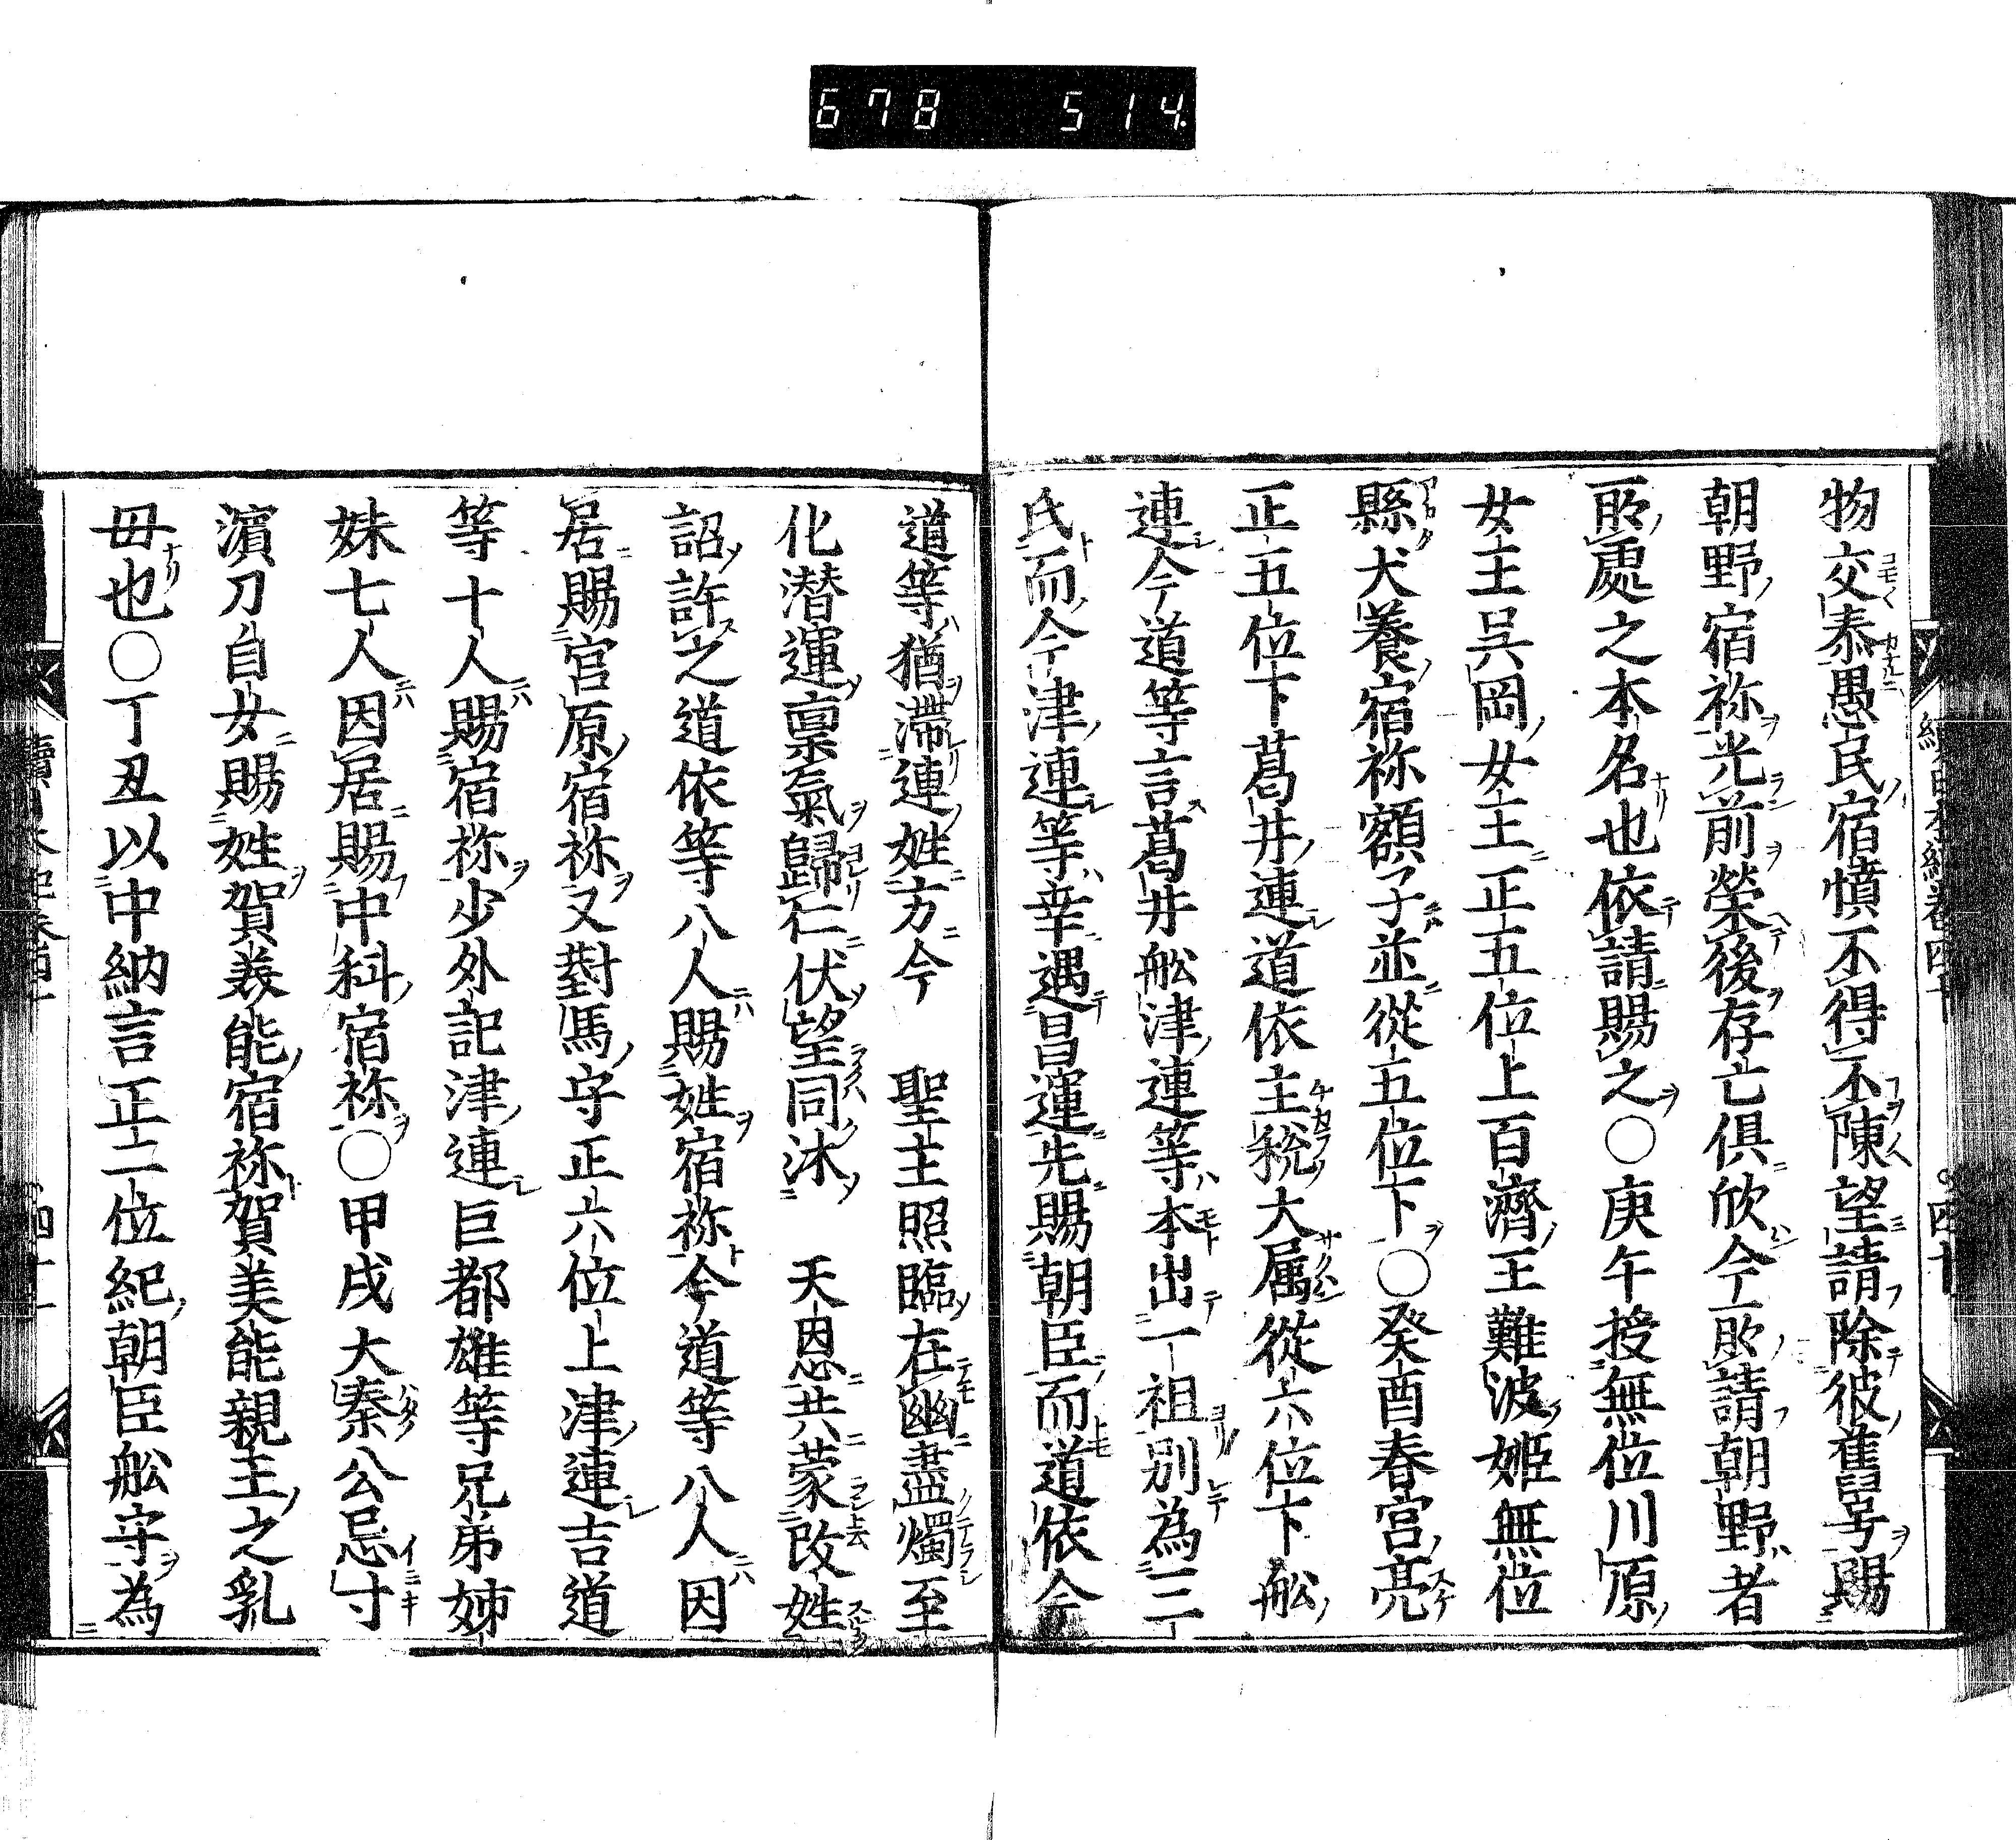 678 514
物交泰愚民宿憤不得不陳望請除彼舊号賜
朝野宿祢光前榮後存亡俱欣今所請朝野者
所處之本名也依請賜之〇庚午授無位川原
女王呉岡女王正五位上百濟王難波姫無位
縣犬養宿祢額子並從五位下〇癸酉春宮亮
正五位下葛井連道依主税大属從六位下舩
連今道等言葛井舩津連等本出一祖別為三
氏而今津連等幸遇昌運先賜朝臣而道依今
道等猶滯連姓方今　聖主照臨在幽盡燭至
化潜運禀氣歸仁伏望同沐　天恩共蒙改姓
詔許之道依等八人賜姓宿祢今道等八人因
居賜宮原宿祢又對馬守正六位上津連吉道
等十人賜宿祢少外記津連巨都雄等兄弟姉
妹七人因居賜中科宿祢〇甲戌大秦公忌寸
濱刀自女賜姓賀美能宿祢賀美能親王之乳
母也〇丁丑以中納言正三位紀朝臣舩守為